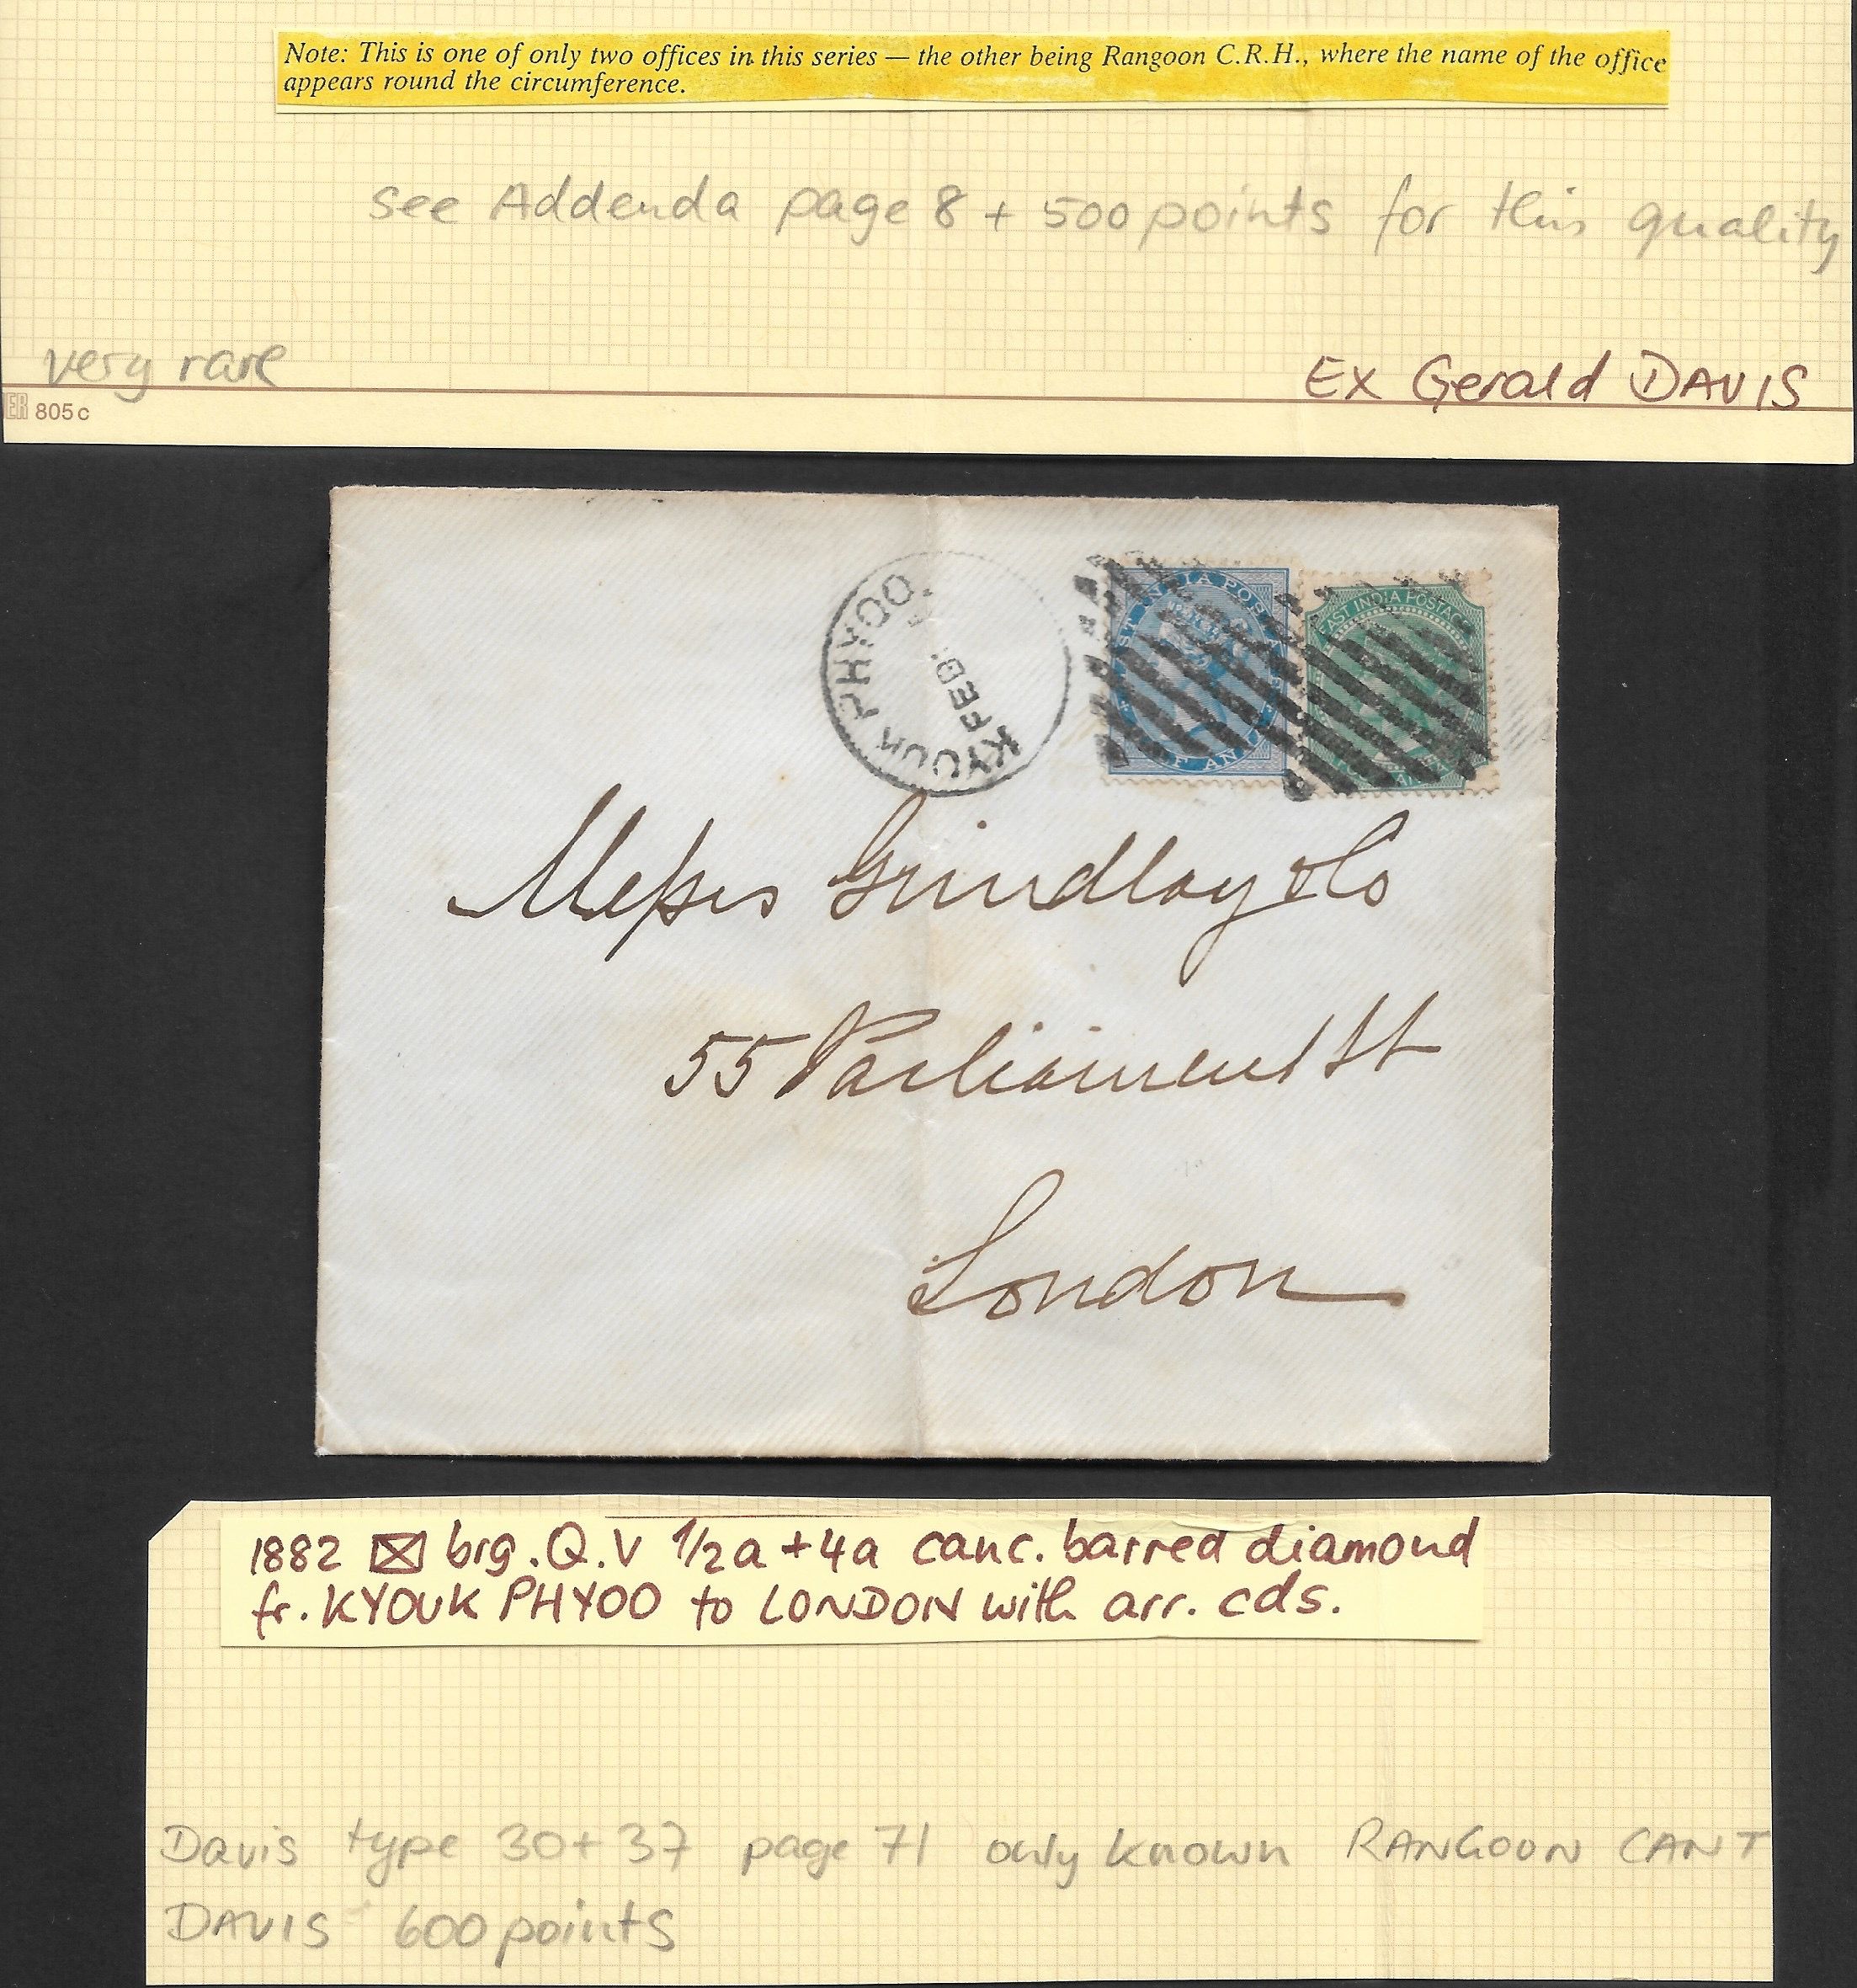 Note: This is one of only two offices in this series — the other being Rangoon C.R.H., where the name of the office
appears round the circumference.
see Addenda page 8 + 500 points for this quality
very rare
Ex Gerald DAVIS
ER 805c
KYOUK PHYOO
FEB
EAST INDIA POSTAGE
HALF ANNA
EAST INDIA POSTAGE
Messrs Grindlay & Co
55 Parliament St
London
1882 ⊠ brg. Q.V 1/2a + 4a canc. barred diamond
fr. KYOUK PHYOO to LONDON with arr. cds.
Davis type 30+37 page 71 only known RANGOON CANT
DAVIS 600 points